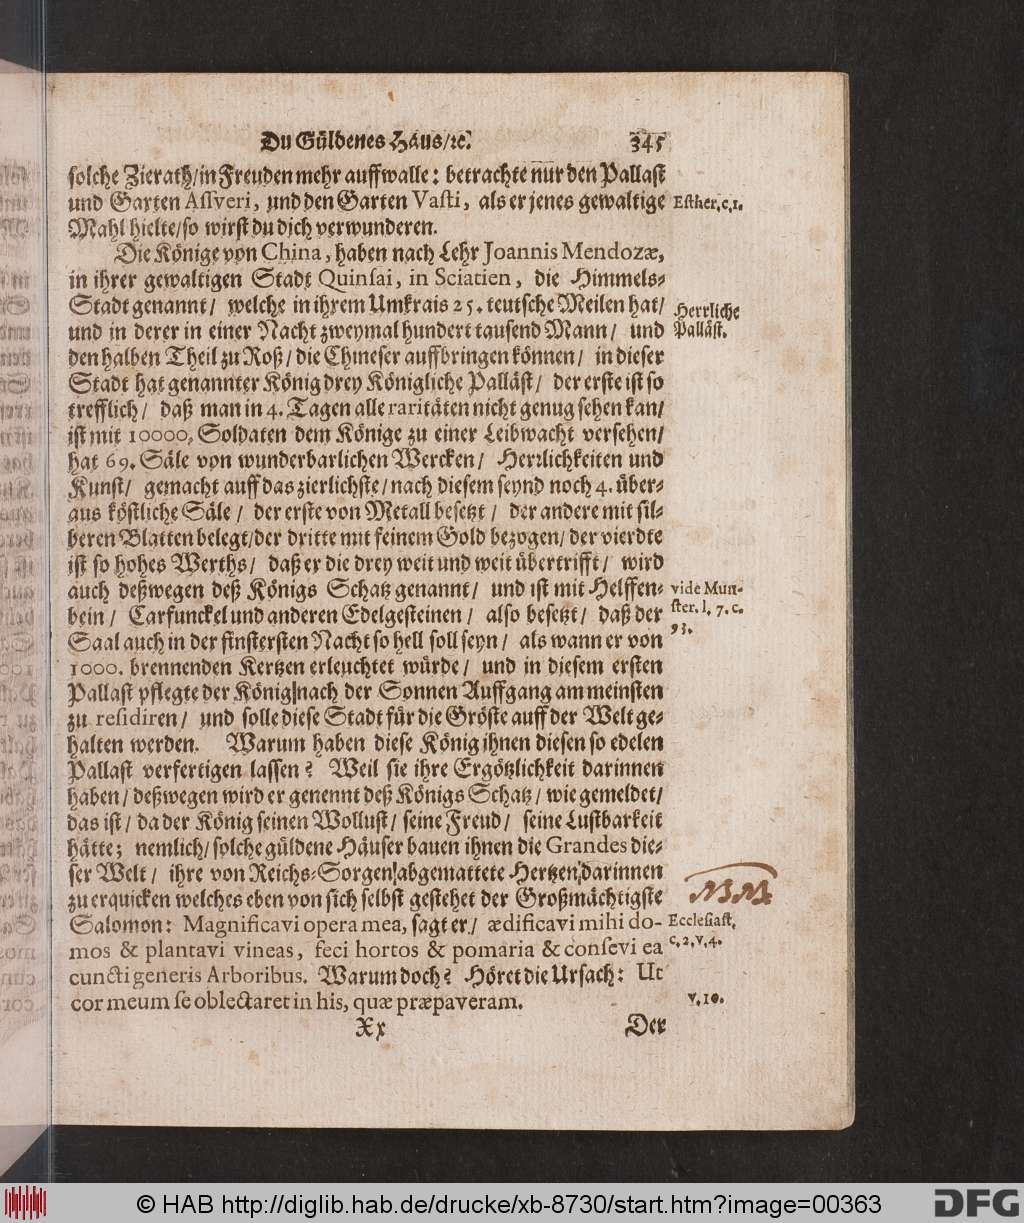 Du Güldenes Häus/ꝛc. 345
solche Zierath/in Freuden mehr auffwalle: betrachte nur den Pallast
und Garten Aſſveri, und den Garten Vaſti, als er jenes gewaltige
Esther, c, 1.
Mahl hielte/so wirst du dich verwunderen.
Die Könige von China, haben nach Lehr Joannis Mendozæ,
in ihrer gewaltigen Stadt Quinſai, in Sciatien, die Himmels-
Stadt genannt/ welche in ihrem Umkrais 25. teutsche Meilen hat/
Herrliche
und in derer in einer Nacht zweymal hundert tausend Mann/ und
Palläst.
den halben Theil zu Roß/ die Chineser auffbringen können/ in dieser
Stadt hat genannter König drey Königliche Palläst/ der erste ist so
trefflich/ daß man in 4. Tagen alle raritäten nicht genug sehen kan/
ist mit 10000, Soldaten dem Könige zu einer Leibwacht versehen/
hat 69. Säle von wunderbarlichen Wercken/ Herꝛlichkeiten und
Kunst/ gemacht auff das zierlichste/ nach diesem seynd noch 4. über-
aus köstliche Säle/ der erste von Metall besetzt/ der andere mit sil-
beren Blatten belegt/der dritte mit feinem Gold bezogen/ der vierdte
ist so hohes Werths/ daß er die drey weit und weit übertrifft/ wird
auch deßwegen deß Königs Schatz genannt/ und ist mit Helffen-
vide Mun-
bein/ Carfunckel und anderen Edelgesteinen/ also besetzt/ daß der
ſter. l. 7. c.
Saal auch in der finstersten Nacht so hell soll seyn/ als wann er von
93.
1000. brennenden Kertzen erleuchtet würde/ und in diesem ersten
Pallast pflegte der König nach der Sonnen Auffgang am meinsten
zu reſidiren/ und solle diese Stadt für die Gröste auff der Welt ge-
halten werden. Warum haben diese König ihnen diesen so edelen
Pallast verfertigen lassen? Weil sie ihre Ergötzlichkeit darinnen
haben/ deßwegen wird er genennt deß Königs Schatz/ wie gemeldet/
das ist/ da der König seinen Wollust/ seine Freud/ seine Lustbarkeit
hätte; nemlich/ solche güldene Häuser bauen ihnen die Grandes die-
ser Welt/ ihre von Reichs-Sorgen abgemattete Hertzen darinnen
zu erquicken welches eben von sich selbst gestehet der Großmächtigste
Salomon: Magnificavi opera mea, sagt er/ ædificavi mihi do-
Eccleſiaſt,
mos & plantavi vineas, feci hortos & pomaria & conſevi ea
c, 2, v, 4.
cuncti generis Arboribus. Warum doch? Höret die Ursach: Ut
cor meum ſe oblectaret in his, quæ præpaveram.
v. 10.
Xx Der
© HAB http://diglib.hab.de/drucke/xb-8730/start.htm?image=00363
DFG